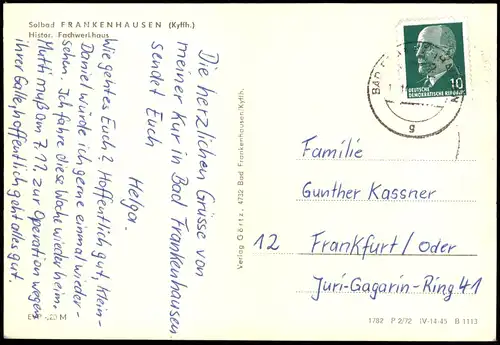 Solbad FRANKENHAUSEN (Kyffh.)
Histor. Fachwerkhaus
Die herzlichen Grüsse von
meiner Kur in Bad Frankenhausen
sendet Euch
Helga.
Wie gehtes Euch? Hoffentlich gut, Klein-
Daniel würde ich gerne einmal wieder-
sehen. Ich fahre diese Woche wieder heim.
Mutti muß am 7.11. zur Operation wegen
ihrer Galle, hoffentlich geht alles gut.
EVP -,20 M
Verlag Görtz, 4732 Bad Frankenhausen/Kyffh.
BAD
g
10
DEUTSCHE
DEMOKRATISCHE REPUBLIK
Familie
Gunther Kassner
12 Frankfurt/oder
Juri-Gagarin-Ring 41
1782 P 2/72 IV-14-45 B 1113